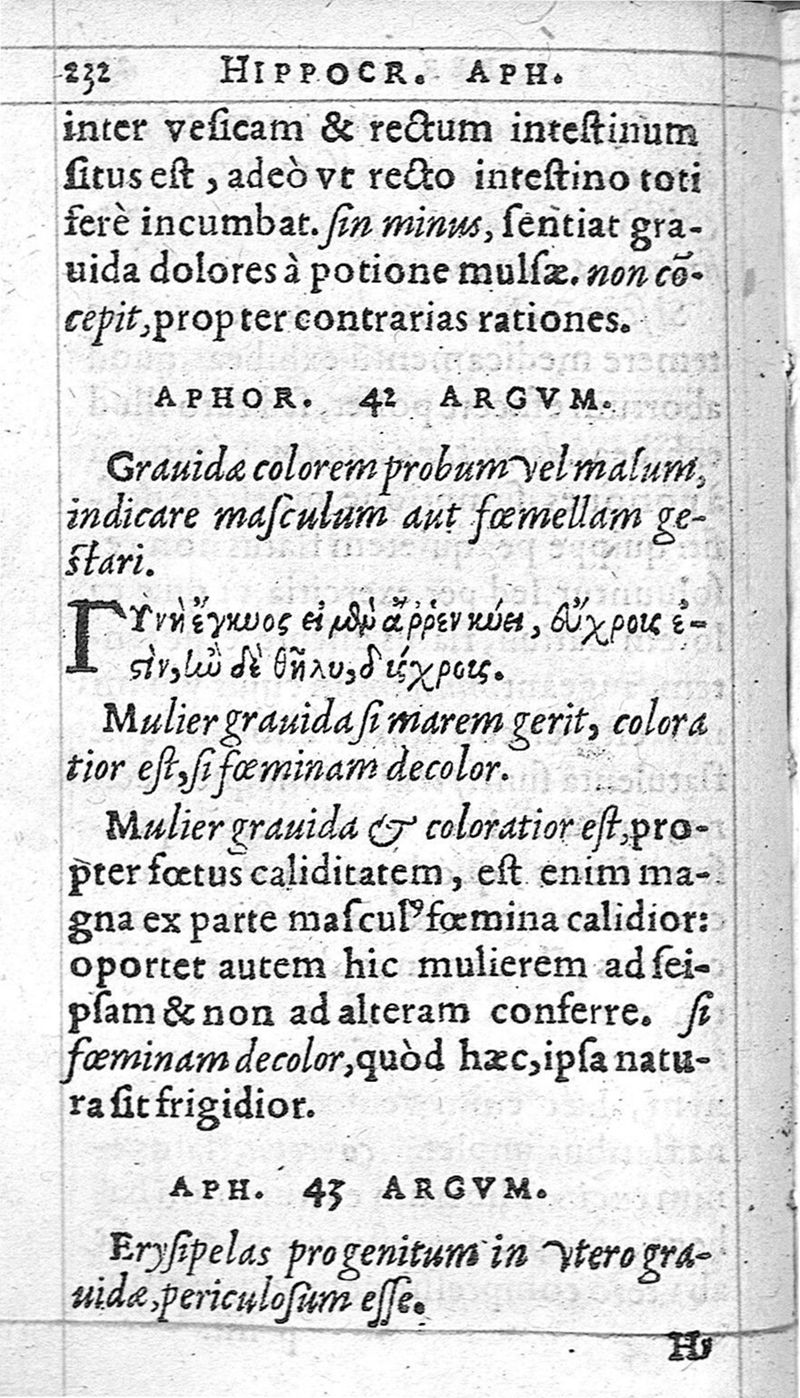 232 HIPPOCR. APH.
inter veſicam & rectum inteſtinum
ſitus eſt, adeò vt recto inteſtino toti
ferè incumbat. ſin minus, ſentiat gra-
uida dolores à potione mulſæ. non cō-
cepit, propter contrarias rationes.
APHOR. 42 ARGVM.
Grauidæ colorem probum vel malum,
indicare maſculum aut fœmellam ge-
ſtari.
ΓΥνὴ ἔγκυος εἰ μὲν ἄῤῥεν κύει, εὔχροις ἐ-
στὶν, ἰὼ δὲ θῆλυ, δύςχροις.
Mulier grauida ſi marem gerit, colora
tior eſt, ſi fœminam decolor.
Mulier grauida & coloratior eſt, pro-
pter fœtus caliditatem, eſt enim ma-
gna ex parte maſculꝰ fœmina calidior:
oportet autem hic mulierem ad ſei-
pſam & non ad alteram conferre. ſi
fœminam decolor, quòd hæc, ipſa natu-
ra ſit frigidior.
APH. 43 ARGVM.
Eryſipelas progenitum in vtero gra-
uidæ, periculoſum eſſe.